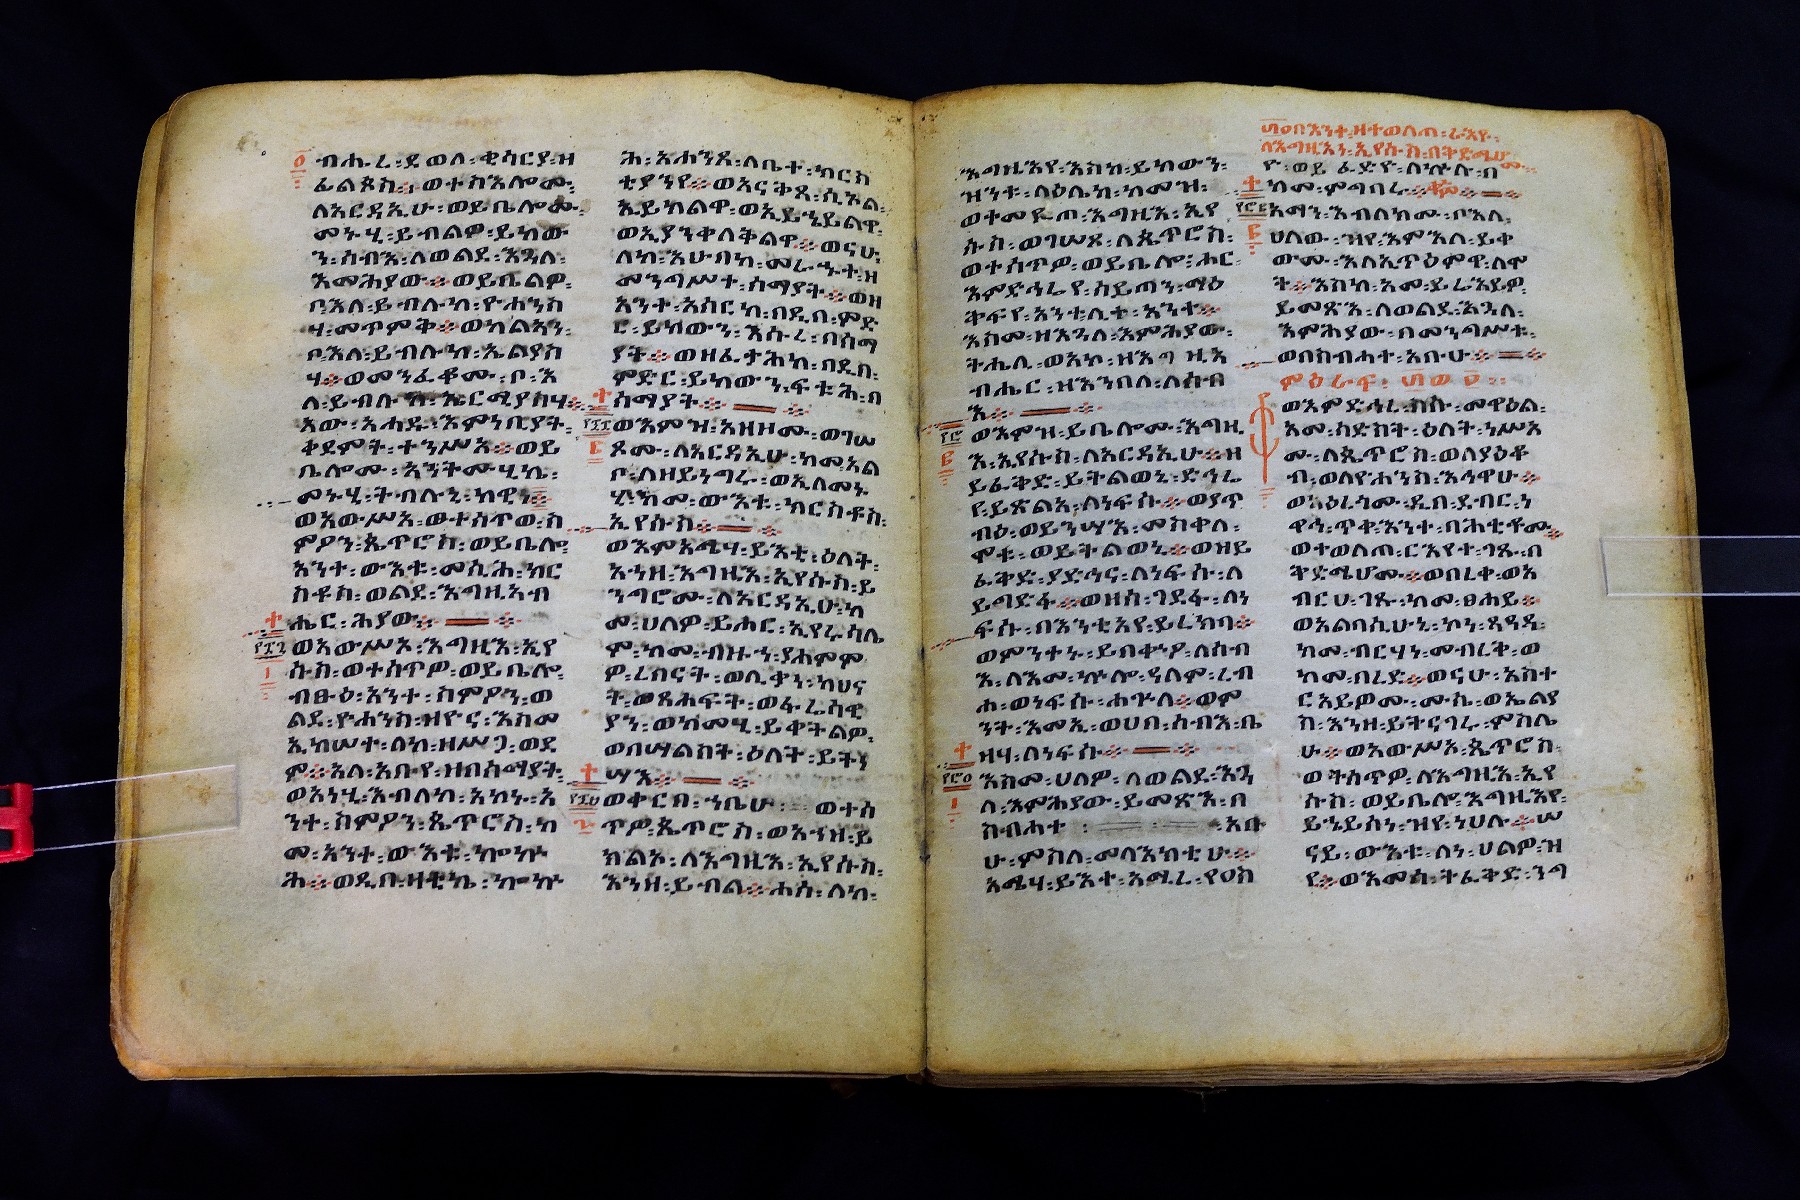 ብሔረ ፡ ደወለ ፡ ቂሳርያ ፡ ዘ
ፊልጶስ ፡ ወተስእሎሙ ፡
ለአርዳኢሁ ፡ ወይቤሎሙ ፡
መኑሂ ፡ ይብልዎ ፡ ይከው
ን ፡ ሰብእ ፡ ለወልደ ፡ እጓለ ፡
እመሕያው ፡ ወይቤልዎ ፡
ቦእለ ፡ ይብሉከ ፡ ዮሐንስ
ሃ ፡ መጥምቅ ፡ ወካልኣን ፡
ቦእለ ፡ ይብሉከ ፡ ኤልያስ
ሃ ፡ ወመንፈቆሙ ፡ ቦ ፡ እ
ለ ፡ ይብሉከ ፡ ኤርሚያስሃ ፡
አው ፡ አሐዱ ፡ እምነቢያት ፡
ቀደምት ፡ ተንሥአ ፡ ወይ
ቤሎሙ ፡ አንትሙሂኬ ፡
መኑሂ ፡ ትብሉኒ ፡ ከዊነ
ወአውሥአ ፡ ወተሰጥወ ፡ ስ
ምዖን ፡ ጴጥሮስ ፡ ወይቤሎ ፡
አንተ ፡ ውእቱ ፡ መሲሕ ፡ ክር
ስቶስ ፡ ወልደ ፡ እግዚአብ
ሔር ፡ ሕያው
ወአውሥአ ፡ እግዚእ ፡ ኢየ
ሱስ ፡ ወተሰጥዎ ፡ ወይቤሎ ፡
ብፁዕ ፡ አንተ ፡ ስምዖን ፡ ወ
ልደ ፡ ዮሐንስ ፡ ዝዮና ፡ እስመ
ኢከሠተ ፡ ለከ ፡ ዘሥጋ ፡ ወደ
ም ፡ አላ ፡ አቡየ ፡ ዘበሰማያት ፡
ወአነሂ ፡ እብለከ ፡ እስመ ፡ አ
ንተ ፡ ስምዖን ፡ ጴጥሮስ ፡ ከ
መ ፡ አንተ ፡ ውእቱ ፡ ኰኵ
ሕ ፡ ወዲበ ፡ ዛቲኬ ፡ ኰኵ
ሕ ፡ አሐንጻ ፡ ለቤተ ፡ ክርስ
ቲያንየ ፡ ወአናቅጸ ፡ ሲኦል ፡
ኢይክልዋ ፡ ወኢይኄይልዋ ፡
ወኢያንቀለቅልዋ ፡ ወናሁ ፡
ለከ ፡ እሁበከ ፡ መራኁተ ፡ ዘ
መንግሥተ ፡ ሰማያት ፡ ወዘ
አንተ ፡ አሰርከ ፡ በዲበ ፡ ምድ
ር ፡ ይከውን ፡ እሱረ ፡ በሰማ
ያት ፡ ወዘፈታሕከ ፡ በዲበ ፡
ምድር ፡ ይከውን ፡ ፍቱሕ ፡ በ
ሰማያት
ወእምዝ ፡ አዘዞሙ ፡ ወገሠ
ጾሙ ፡ ለአርዳኢሁ ፡ ከመ አል
ቦ ፡ ለዘይነግሩ ፡ ወኢለመኑ
ሂ ፡ ከመ ፡ ውእቱ ፡ ክርስቶስ ፡
ኢየሱስ
ወእምአሜሃ ፡ ይእቲ ፡ ዕለት ፡
አኀዘ ፡ እግዚእ ፡ ኢየሱስ ፡ ይ
ንግሮሙ ፡ ለአርዳኢሁ ፡ ከ
መ ፡ ሀለዎ ፡ ይሑር ፡ ኢየሩሳሌ
ም ፡ ከመ ፡ ብዙኀ ፡ ያሐምም
ዎ ፡ ረበናት ፡ ወሊቃነ ፡ ካህና
ት ፡ ወጸሐፍት ፡ ወፈሪሳዊ
ያን ፡ ወከመሂ ፡ ይቀትልዎ ፡
ወበሣልስት ፡ ዕለት ፡ ይትነ
ሣእ
ወቀርበ ፡ ኀቤሁ ወተሰ
ጥዎ ፡ ጴጥሮስ ፡ ወአኀዘ ፡ ይ
ክልኦ ፡ ለእግዚእ ፡ ኢየሱስ ፡
እንዘ ፡ ይብል ፡ ሐሰ ፡ ለከ ፡
እግዚእየ ፡ እስከ ፡ ይከውን ፡
ዝንቱ ፡ ላዕሌከ ፡ ከመዝ ፡
ወተመይጠ ፡ እግዚእ ፡ ኢየ
ሱስ ፡ ወገሠጸ ፡ ለጴጥሮስ ፡
ወተሰጥዎ ፡ ወይቤሎ ፡ ሑር ፡
እምድኅሬየ ፡ ሰይጣን ፡ ማዕ
ቅፍየ ፡ አንተ ፡ ሊተ ፡ አንተ ፡
እስመ ፡ ዘእጓለ ፡ እምሕያው ፡
ትሔሊ ፡ ወአኮ ፡ ዘእግዚአ
ብሔር ፡ ዘእንበለ ፡ ለሰብ
እ
ወእምዝ ፡ ይቤሎሙ ፡ እግዚ
እ ፡ ኢየሱስ ፡ ለአርዳኢሁ ፡ ዘ
ይፈቅድ ፡ ይትልወኒ ፡ ድኅሬ
የ ፡ ይጽልአ ፡ ለነፍሱ ፡ ወያጥ
ብዕ ፡ ወይንሣእ ፡ መስቀለ ፡
ሞቱ ፡ ወይትልወኒ ፡ ወዝይ
ፈቅድ ፡ ያድኅና ፡ ለነፍሱ ፡ ለ
ይግድፋ ፡ ወዘሰ ፡ ገደፋ ፡ ለነ
ፍሱ ፡ በእንቲአየ ፡ ይረክባ
ወምንተኑ ፡ ይበቍዖ ፡ ለሰብ
እ ፡ ለእመ ፡ ኵሎ ፡ ዓለም ፡ ረብ
ሐ ፡ ወነፍሱ ፡ ሐጕለ ፡ ወም
ንት ፡ እመኢ ፡ ወሀበ ፡ ሰብእ ፡ ቤ
ዛሃ ፡ ለነፍሱ
እስመ ፡ ሀለዎ ፡ ለወልደ ፡ እጓ
ለ ፡ እምሕያው ፡ ይመጽእ ፡ በ
ስብሐተ ፡ አቡ
ሁ ፡ ምስለ ፡ መላእክቲሁ
አሜሃ ፡ ይእተ ፡ አሚረ ፡ የዐስ
፴፬በእንተ ፡ ዘተወለጠ ፡ ራእየ
ለእግዚእነ ፡ ኢየሱስ ፡ በቅድሜሆሙ
ዮ ፡ ወይፈድዮ ፡ ለኵሉ ፡ በ
ከመ ፡ ምግባሩ
አማን ፡ እብለክሙ ፡ ቦእለ ፡
ሀለው ፡ ዝየ ፡ እምእለ ፡ ይቀ
ውሙ ፡ እለኢጥዕምዋ ፡ ለሞ
ት ፡ እስከ ፡ አመ ፡ ይሬእይዎ ፡
ይመጽእ ፡ ለወልደ ፡ እጓለ ፡
እምሕያው ፡ በመንግሥቱ ፡
ወበስብሐተ ፡ አቡሁ
ምዕራፍ
ወእምድኅረ ፡ ሰሱ ፡ መዋዕል ፡
አመ ፡ ስድስት ፡ ዕለት ፡ ነሥኦ
ሙ ፡ ለጴጥሮስ ፡ ወለያዕቆ
ብ ፡ ወለዮሐንስ ፡ እኅዋሁ
ወአዕረጎሙ ፡ ዲበ ፡ ደብር ፡ ነ
ዋኅ ፡ ጥቀ ፡ እንተ ፡ በሕቲቶሙ
ወተወለጠ ፡ ርእየተ ፡ ገጹ ፡ በ
ቅድሜሆሙ ፡ ወበረቀ ፡ ወአ
ብርሀ ፡ ገጹ ፡ ከመ ፡ ፀሐይ
ወአልባሲሁኒ ፡ ኮነ ፡ ጸዓዳ ፡
ከመ ፡ ብርሃነ ፡ መብረቅ ፡ ወ
ከመ ፡ በረድ ፡ ወናሁ ፡ አስተ
ርአይዎሙ ፡ ሙሴ ፡ ወኤልያ
ስ ፡ እንዘ ፡ ይትናገሩ ፡ ምስሌ
ሁ ፡ ወአውሥአ ፡ ጴጥሮስ ፡
ወትሰጥዎ ፡ ለእግዚእ ፡ ኢየ
ሱስ ፡ ወይቤሎ ፡ እግዚእየ ፡
ይኄይሰነ ፡ ዝየ ፡ ነሀሉ ፡ ሠ
ናይ ፡ ውእቱ ፡ ለነ ፡ ሀልዎ ፡ ዝ
የ ፡ ወእመሰ ፡ ትፈቅድ ፡ ንግ